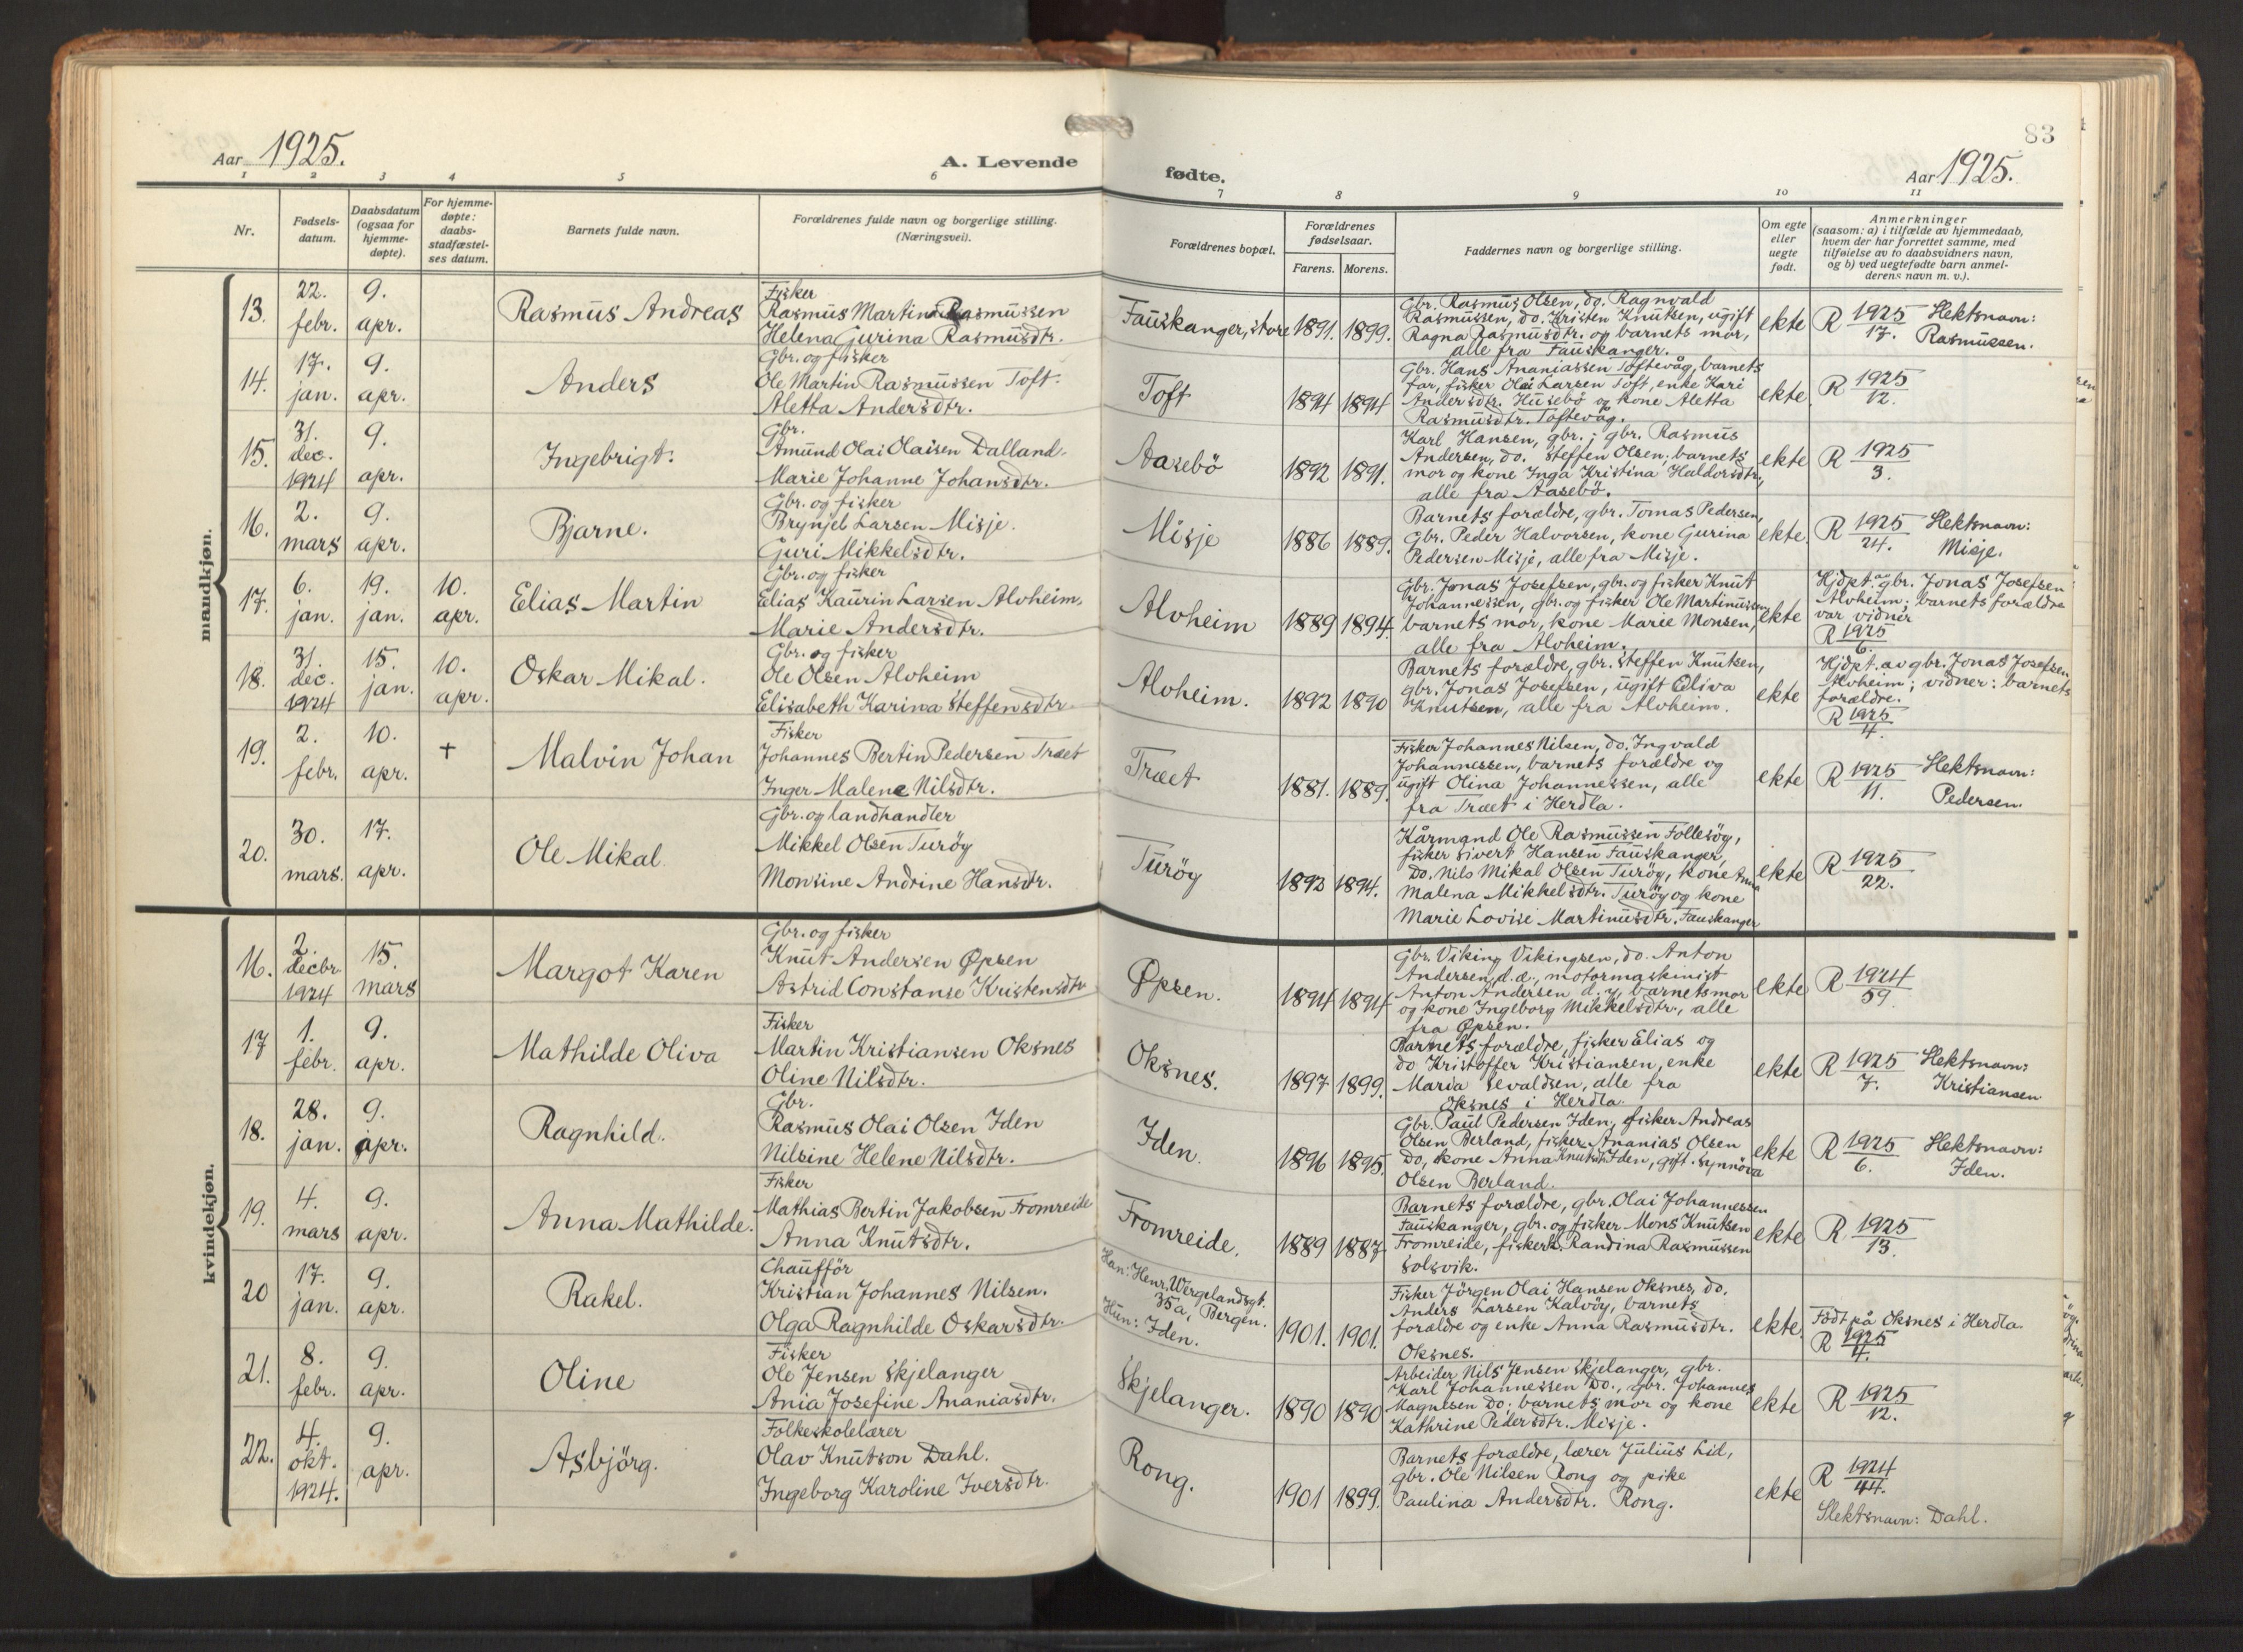 83
Aar 1925.
A. Levende
fødte.
Aar 1925.
1 2 3 4 5 6 7 8 9 10 11
Nr.
Fødsels-
datum.
Daabsdatum
(ogsaa for
hjemme-
døpte).
For hjemme-
døpte:
daabs-
stadfæstel-
ses datum.
Barnets fulde navn.
Forældrenes fulde navn og borgerlige stilling.
(Næringsvei).
Forældrenes bopæl.
Forældrenes
fødselsaar.
Farens. Morens.
Faddernes navn og borgerlige stilling.
Om egte
eller
uegte
født.
Anmerkninger
(saasom: a) i tilfælde av hjemmedaab,
hvem der har forrettet samme, med
tilføielse av to daabsvidners navn,
og b) ved uegtefødte barn anmel-
derens navn m. v.).
mandkjøn.
13.
22.
febr.
9.
apr.
Rasmus Andreas
Fisker
Rasmus Martin Rasmussen
Helena Gurina Rasmusdtr.
Fauskanger, store
1891. 1899.
Gbr. Rasmus Olsen, do. Ragnvald
Rasmussen, do. Kristen Knutsen, ugift
Ragna Rasmusdtr. og barnets mor,
alle fra Fauskanger.
ekte
R 1925
17.
Slektsnavn:
Rasmussen.
14.
17.
jan.
9.
apr.
Anders
Gbr. og fisker
Ole Martin Rasmussen Toft.
Aletta Andersdtr.
Toft
1894 1894
Gbr. Hans Ananiassen Toftevåg, barnets
far, fisker Olai Larsen Toft, enke Kari
Andersdtr. Husebø og kone Aletta
Rasmusdtr. Toftevåg.
ekte
R 1925
12.
15.
31.
dec.
1924
9.
apr.
Ingebrigt.
Gbr.
Amund Olai Olaisen Dalland.
Marie Johanne Johansdtr.
Aasebö
1892 1891.
Karl Hansen, gbr.; gbr. Rasmus
Andersen, do. Steffen Olsen; barnets
mor og kone Inga Kristina Haldorsdtr,
alle fra Aasebö.
ekte
R 1925
3.
16.
2.
mars
9.
apr.
Bjarne.
Gbr. og fisker
Brynjel Larsen Misje.
Guri Mikkelsdtr.
Misje
1886 1889.
Barnets forældre, gbr. Tomas Pedersen,
Gbr. Peder Halvorsen, kone Gurina
Pedersen Misje, alle fra Misje.
ekte.
R 1925
24.
Slektsnavn:
Misje.
17.
6.
jan.
19.
jan.
10.
apr.
Elias Martin
Gbr. og fisker
Elias Kaurin Larsen Alvheim.
Marie Andersdtr.
Alvheim
1889 1894.
Gbr. Jonas Josefsen, gbr. og fisker Knut
Johannessen, gbr. og fisker Ole Martinussen
barnets mor, kone Marie Monsen,
alle fra Alvheim.
ekte
Hjdpt. av gbr. Jonas Josefsen
Alvheim; barnets forældre
var vidner
R 1925
6.
18.
31.
dec.
1924
15.
jan.
10.
apr.
Oskar Mikal.
Gbr. og fisker
Ole Olsen Alvheim
Elisabeth Karina Steffensdtr.
Alvheim.
1892 1890
Barnets forældre, gbr. Steffen Knutsen,
gbr. Jonas Josefsen, ugift Oliva
Knutsen, alle fra Alvheim.
ekte
Hjdpt. av gbr. Jonas Josefsen
Alvheim; vidner: barnets
forældre.
R 1925
4.
19.
2.
febr.
10.
apr.
+
Malvin Johan
Fisker
Johannes Bertin Pedersen Træet
Inger Malene Nilsdtr.
Træet
1881. 1889.
Fisker Johannes Nilsen, do. Ingvald
Johannessen, barnets forældre og
ugift Olina Johannessen, alle
fra Træet i Herdla.
ekte
R 1925
11.
Slektsnavn:
Pedersen.
20.
30.
mars.
17.
apr.
Ole Mikal
Gbr. og landhandler
Mikkel Olsen Turöy
Monsine Andrine Hansdtr.
Turöy
1892 1894.
Kårmand Ole Rasmussen Follesöy,
fisker Sivert Hansen Fauskanger,
do. Nils Mikal Olsen Turöy, kone Anna
Malena Mikkelsdtr. Turöy og kone
Marie Lovise Martinusdtr. Fauskanger
ekte
R 1925
22.
kvindekjøn.
16.
2.
decbr.
1924
15.
mars
Margot Karen
Gbr. og fisker
Knut Andersen Øpsen
Astrid Constanse Kristensdtr
Øpsen.
1894 1894
Gbr. Viking Vikingsen, do. Anton
Andersen, d.e., motormaskinist
Anton Andersen d.y, barnets mor
og kone Ingeborg Mikkelsdtr., alle
fra Øpsen.
ekte
R 1924
59.
17
1.
febr.
9.
apr.
Mathilde Oliva
Fisker
Martin Kristiansen Oksnes
Oline Nilsdtr.
Oksnes.
1897 1899.
Barnets forældre, fisker Elias og
do Kristoffer Kristiansen, enke
Marda Sevaldsen, alle fra
Oksnes i Herdla.
ekte
R 1925
7.
Slektsnavn:
Kristiansen
18.
28.
jan.
9.
apr.
Ragnhild.
Gbr.
Rasmus Olai Olsen Iden
Nilsine Helene Nilsdtr.
Iden.
1896 1895.
Gbr. Paul Pedersen Iden, fisker Andreas
Olsen Berland, fisker Ananias Olsen
do, kone Anna Knutsdtr Iden, gift Synnöva
Olsen Berland.
ekte
R 1925
6.
Slektsnavn:
Iden.
19.
4.
mars
9.
apr.
Anna Mathilde.
Fisker
Mathias Bertin Jakobsen Fromreide
Anna Knutsdtr.
Fromreide.
1889 1887
Barnets forældre, gbr. Olai Johannessen
Fauskanger, gbr. og fisker Mons Knutsen
Fromreide, fiskerk. Randina Rasmussen
Solsvik.
ekte
R 1925
13.
20
17.
jan.
9.
apr.
Rakel.
Chaufför
Kristian Johannes Nilsen.
Olga Ragnhilde Oskarsdtr.
Han: Henr. Wergelandsgt.
35a, Bergen.
Hun: Iden.
1901. 1901.
Fisker Jörgen Olai Hansen Oksnes, do.
Anders Larsen Kalvöy, barnets
forældre og enke Anna Rasmusdtr.
Oksnes.
ekte.
Födt på Oksnes i Herdla
R 1925
4.
21.
8.
febr.
9.
apr.
Oline
Fisker
Ole Jensen Skjelanger
Ania Josefine Ananiasdtr.
Skjelanger.
1890 1890
Arbeider Nils Jensen Skjelanger, gbr.
Karl Johannessen do., gbr. Johannes
Magnesen do; barnets mor og kone
Kathrine Pedersdtr. Misje.
ekte
R 1925
12.
22.
4.
okt.
1924.
9.
apr.
Asbjörg.
Folkeskolelærer
Olav Knutson Dahl.
Ingeborg Karoline Iversdtr.
Rong.
1901 1899.
Barnets forældre, lærer Julius Lid,
gbr. Ole Nilsen Rong og pike
Paulina Andersdtr. Rong.
ekte
R 1924
44.
Slektsnavn: Dahl.